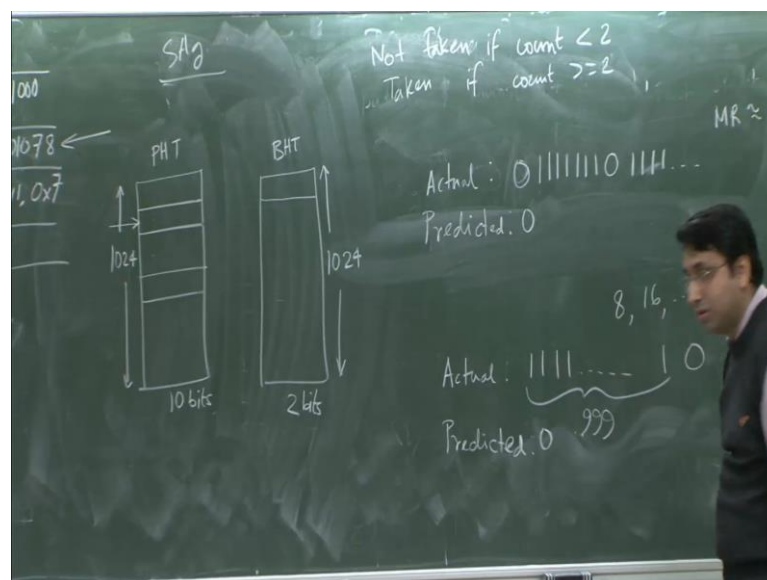 1000
01078
1, 0x7
SAg
PHT
1024
10 bits
BHT
1024
2 bits
Not taken if count < 2
Taken if count >=2
MR ≈
Actual: 0 11111111 0 1111...
Predicted: 0
8, 16, ..
Actual: 1111..... 1 0
999
Predicted: 0